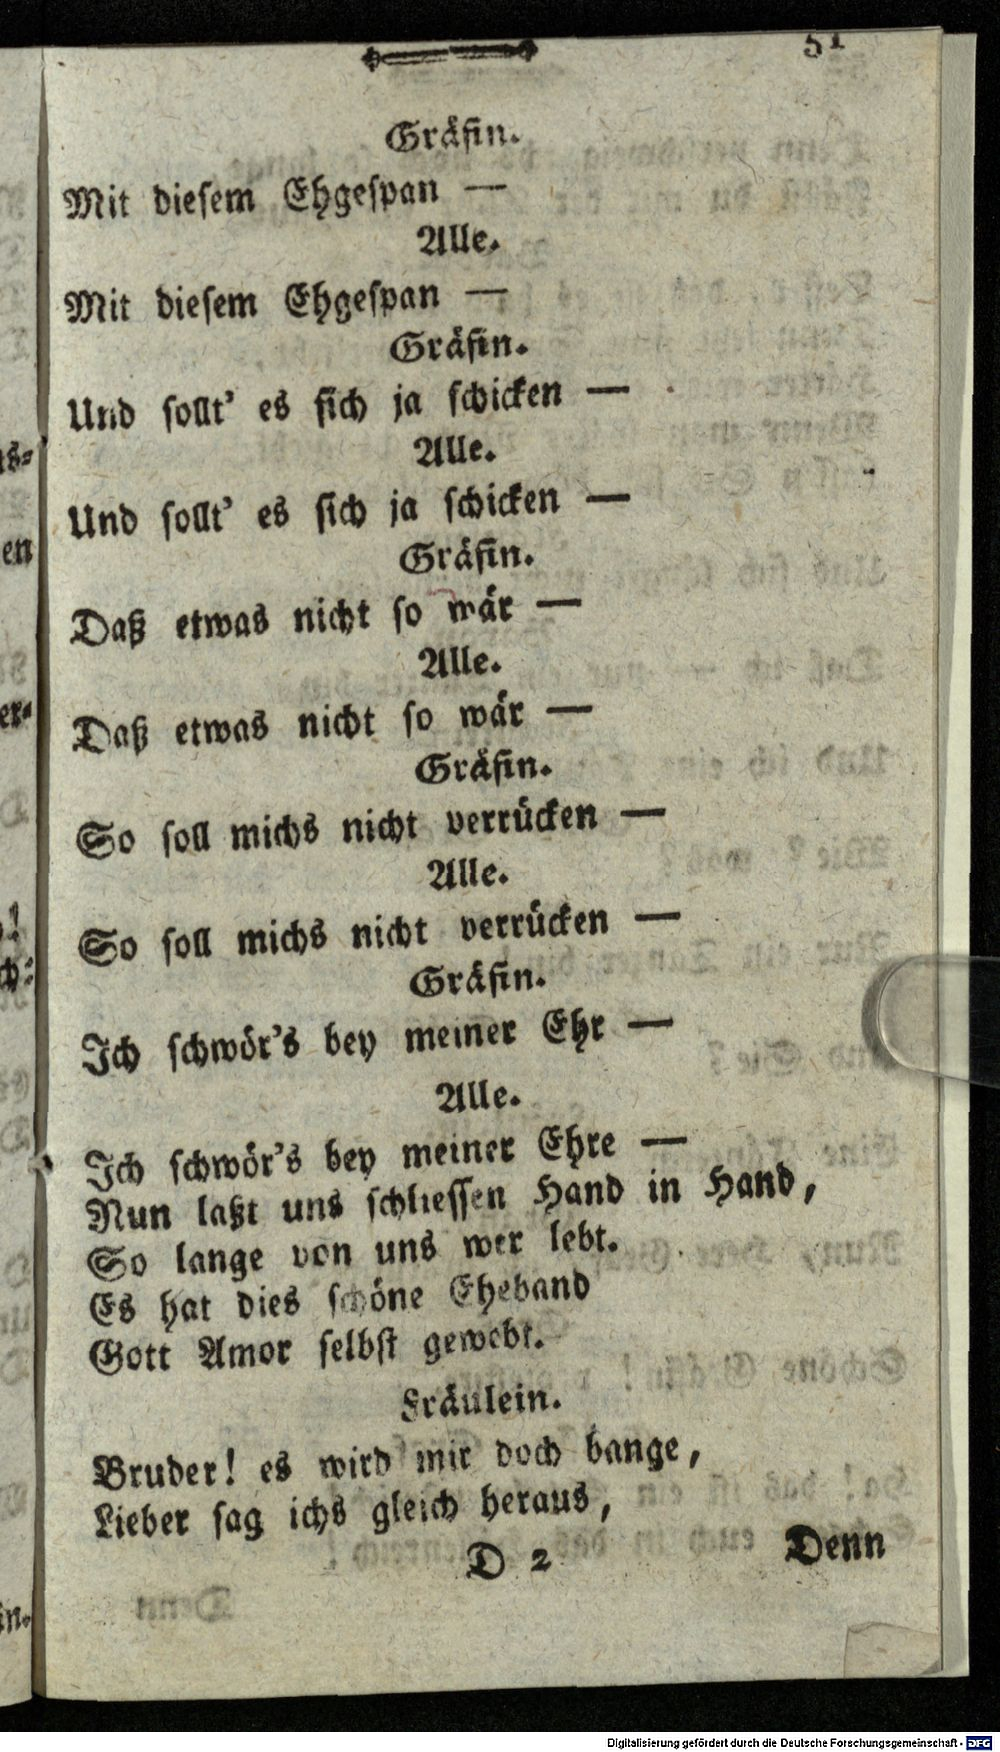 51
Gräfin.
Mit diesem Ehgespan —
Alle.
Mit diesem Ehgespan —
Gräfin.
Und sollt' es sich ja schicken —
Alle.
Und sollt' es sich ja schicken —
Gräfin.
Daß etwas nicht so wär —
Alle.
Daß etwas nicht so wär —
Gräfin.
So soll michs nicht verrücken —
Alle.
So soll michs nicht verrücken —
Gräfin.
Ich schwör's bey meiner Ehr —
Alle.
Ich schwör's bey meiner Ehre —
Nun laßt uns schliessen Hand in Hand,
So lange von uns wer lebt.
Es hat dies schöne Eheband
Gott Amor selbst gewebt.
Fräulein.
Bruder! es wird mir doch bange,
Lieber sag ichs gleich heraus,
D 2 Denn
Digitalisierung gefördert durch die Deutsche Forschungsgemeinschaft - DFG